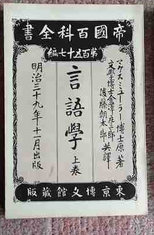 帝國百科全書
第百五十七編
マクス、ミューラー博士原著
文學博士金澤庄三郎
後藤朝太郎 共譯
言語學 上巻
明治三十九年十一月出版
東京博文館蔵版